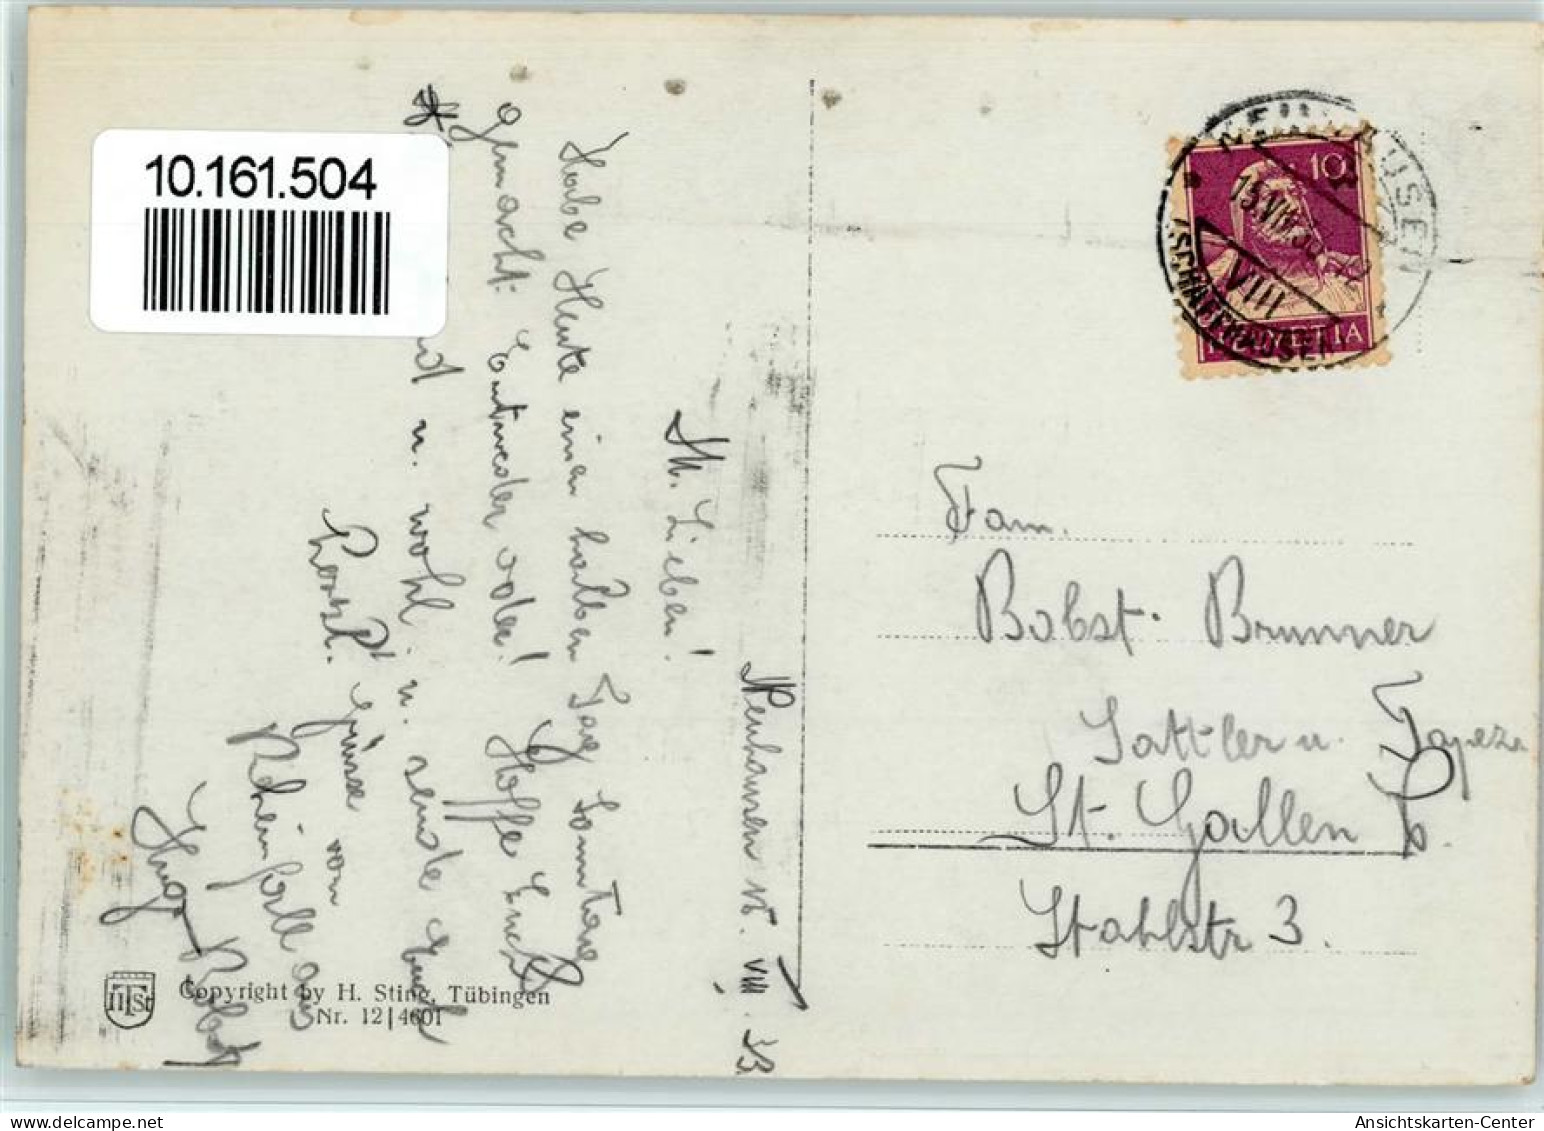 10.161.504
Neuhausen 15. VIII. 33
M. Lieben!
Habe Heute einen halben Tag
gemacht. Entweder oder! Hoffe Euch
u. wohl. u. sende Euch
herzl. Grüsse vom
Rheinfall aus
Hugo Bobst
Copyright by H. Sting, Tübingen
Nr. 12|4601
HTSt
NEUHAUSEN
(SCHAFFHAUSEN)
VIII
10
HELVETIA
Fam.
Bobst-Brunner
Sattler u. Tapez
St. Gallen
Stahlstr 3.
Ansichtskarten-Center